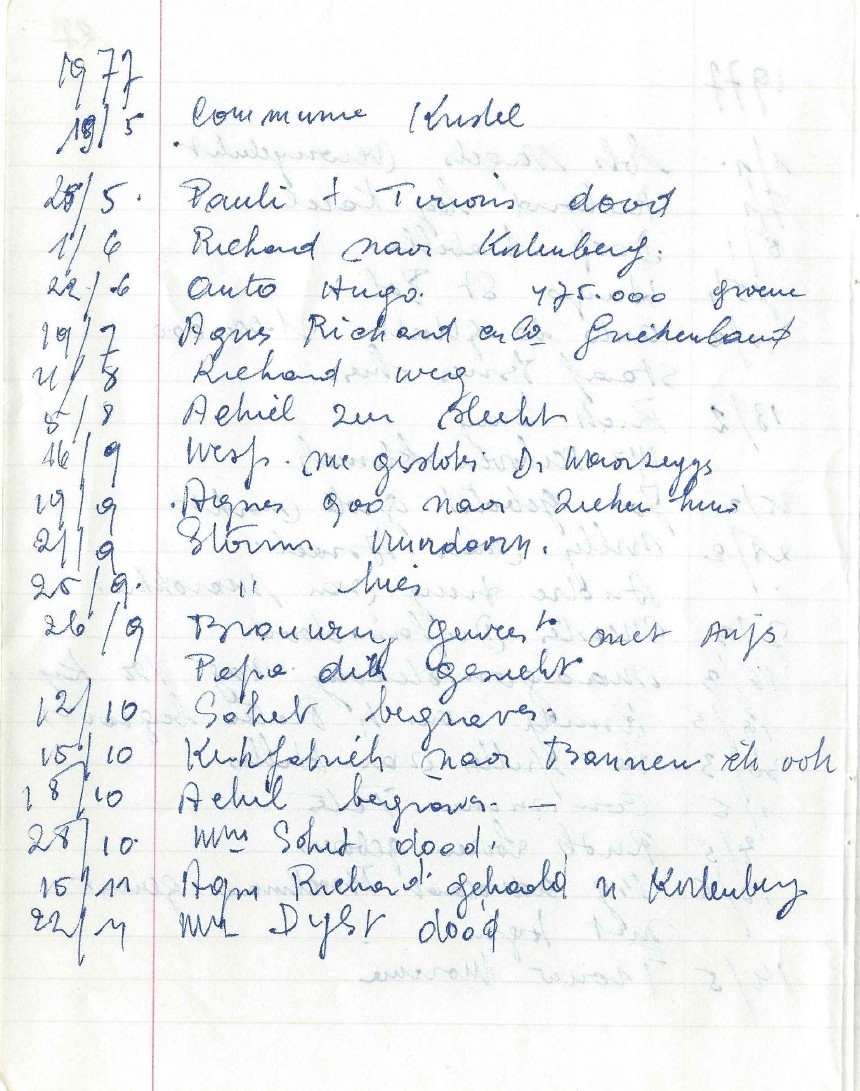 1977
19/5 Communie Kristel
25/5. Pauli + Tirions dood
1/6 Richard naar Kortenberg.
22/6 auto Hugo. 475.000 groene
19/7 Agnes Richard en Co Griekenland
4/8 Richard weg
5/8 Achiel zeer slecht
16/9 Wesp. me gestoken Dr Waerzeggs
19/9 Agnes goo naar Zieken huis
21/9 Storms
25/9. " hier
26/9 Brouwery geweest met Anjs
Papa dik gezicht
12/10 Sohet begraven.
15/10 Kerkfabriek naar Bonnen ik ook
18/10 Achil begraven. —
28/10. Mme Sohet dood.
15/11 Agn Richard gehaald n Kortenberg
22/11 Mr Dyst dood